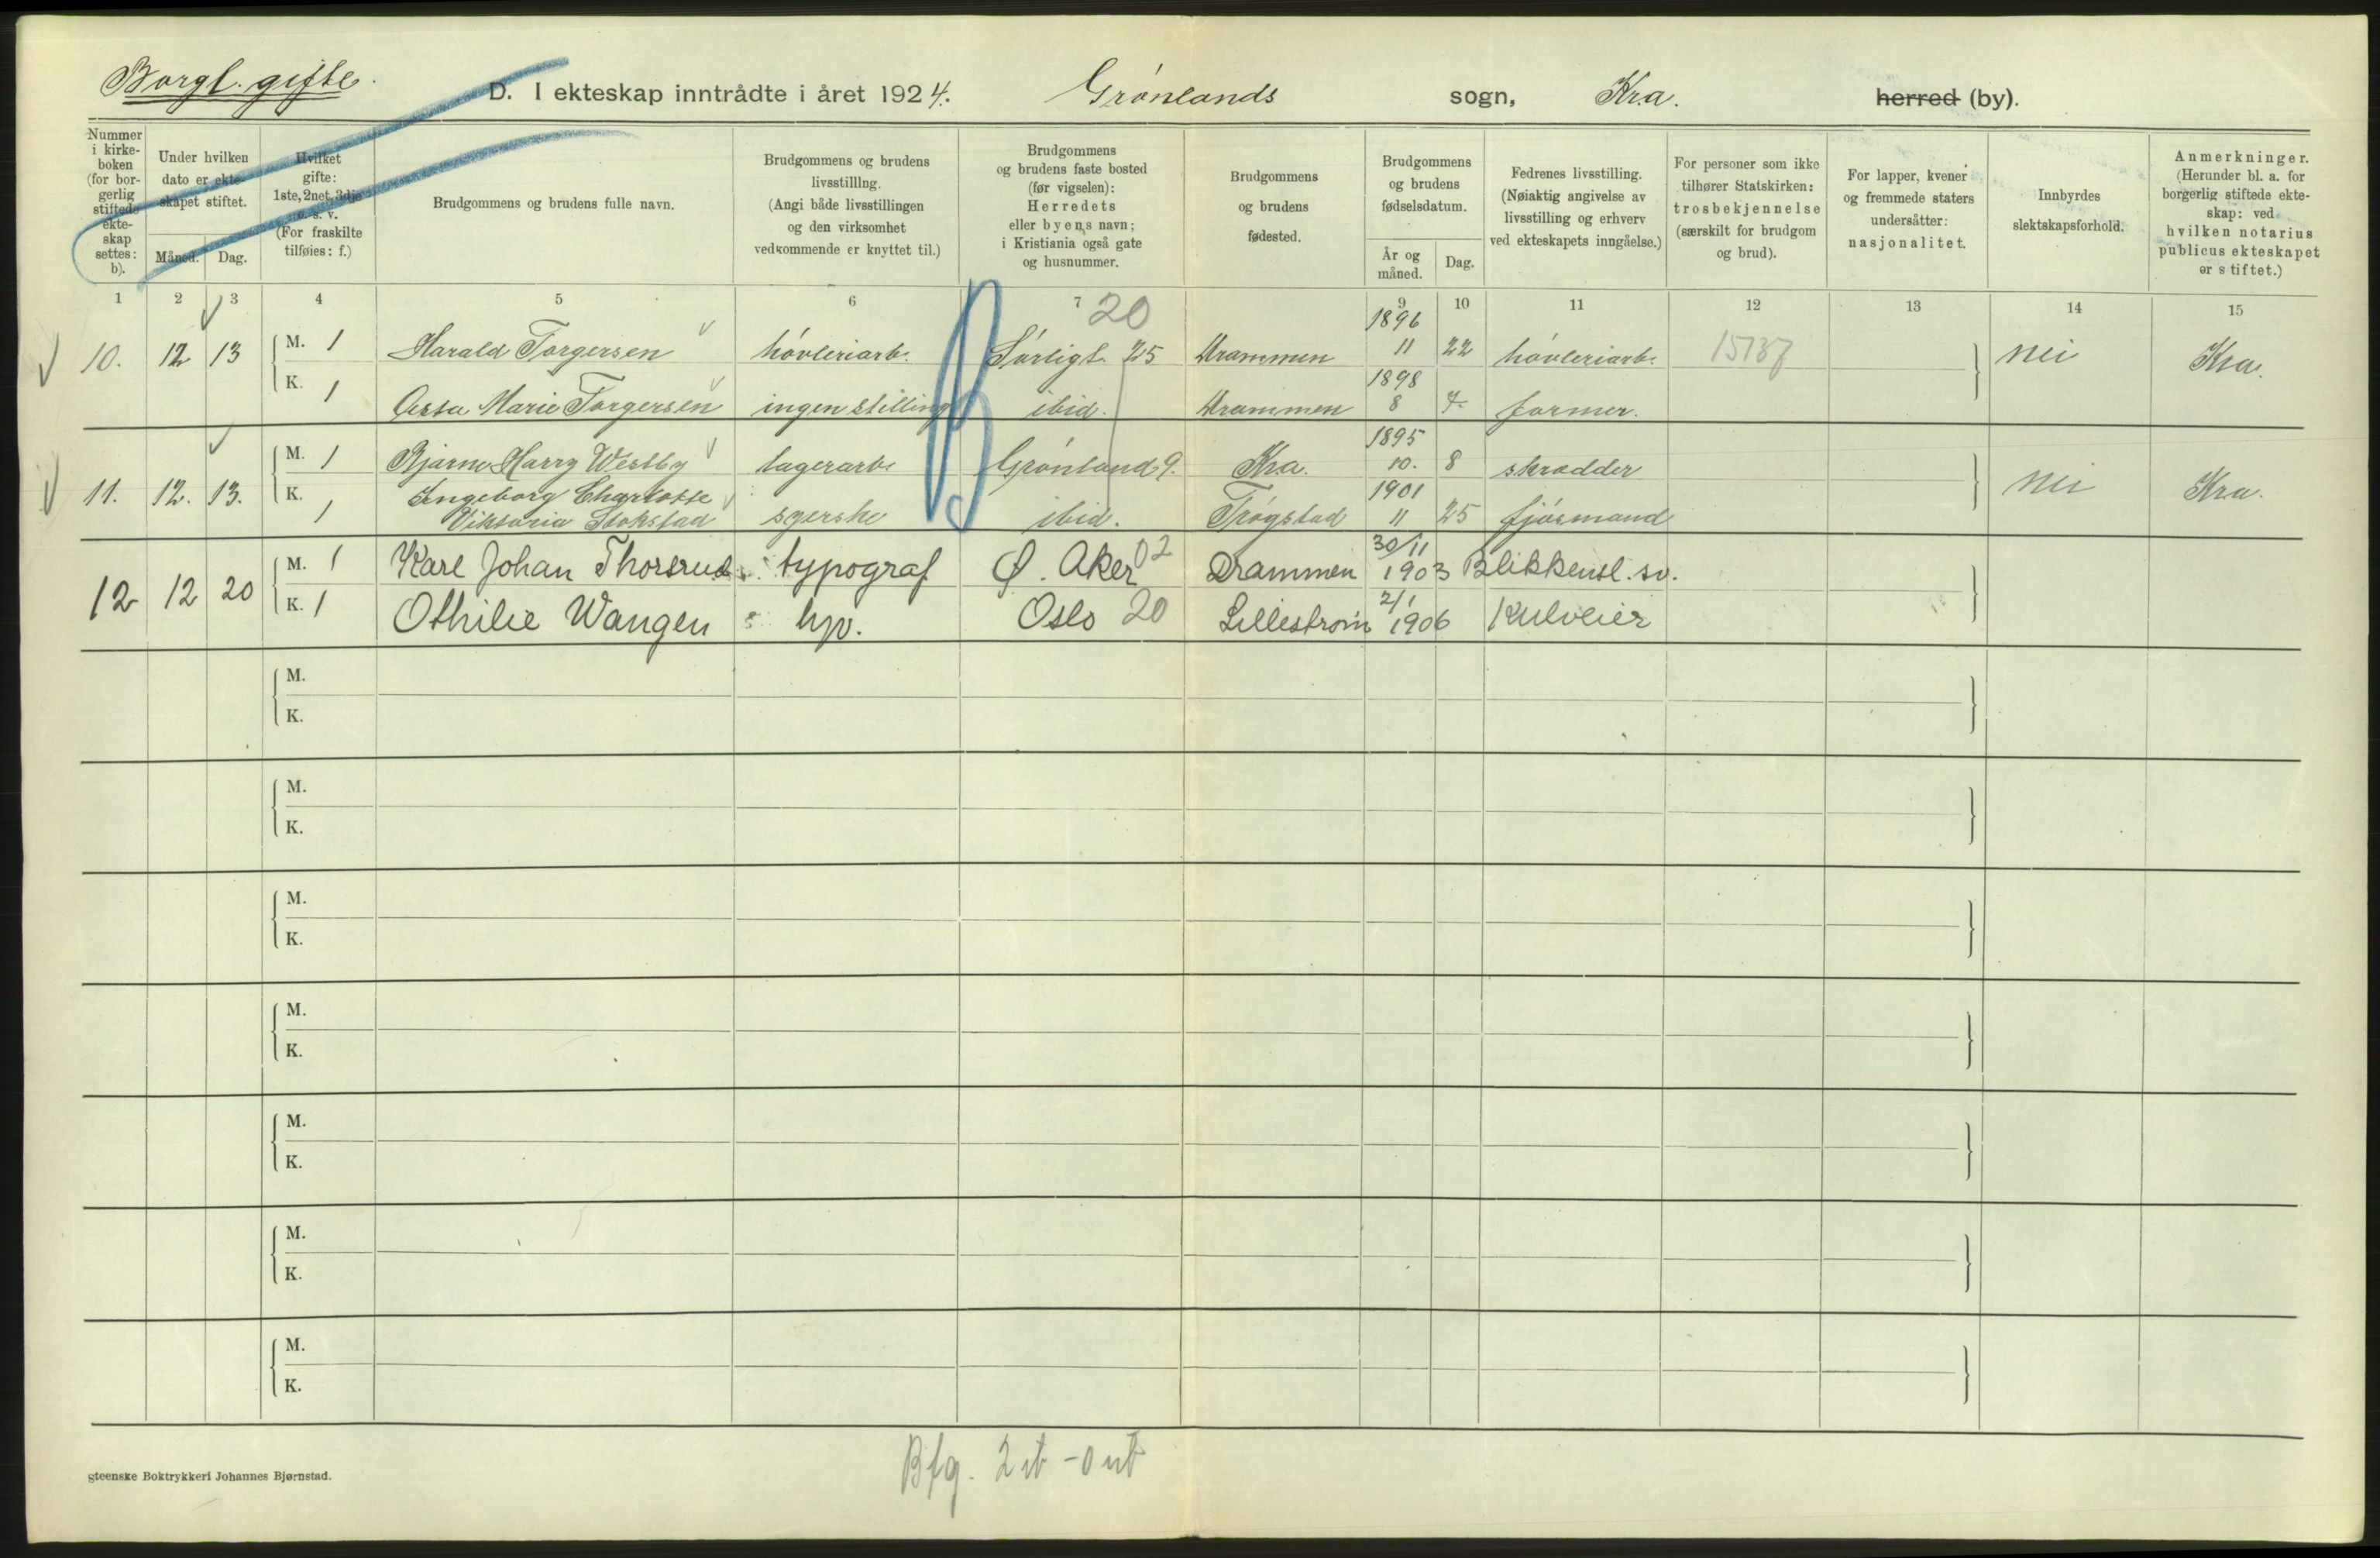 Borgl. gifte.
D. I ekteskap inntrådte i året 1924. Grønlands sogn, Kra. herred (by).
Nummer i kirke-boken (for bor-gerlig stiftede ekte-skap settes: b).
Under hvilken dato er ekte-skapet stiftet.
Måned. Dag.
Hvilket gifte: 1ste, 2net, 3dje o. s. v. (For fraskilte tilføies: f.)
Brudgommens og brudens fulle navn.
Brudgommens og brudens livsstilling. (Angi både livsstillingen og den virksomhet vedkommende er knyttet til.)
Brudgommens og brudens faste bosted (før vigselen): Herredets eller byens navn; i Kristiania også gate og husnummer.
Brudgommens og brudens fødested.
Brudgommens og brudens fødselsdatum.
År og måned. Dag.
Fedrenes livsstilling. (Nøiaktig angivelse av livsstilling og erhverv ved ekteskapets inngåelse.)
For personer som ikke tilhører Statskirken: trosbekjennelse (særskilt for brudgom og brud).
For lapper, kvener og fremmede staters undersåtter: nasjonalitet.
Innbyrdes slektskapsforhold.
Anmerkninger. (Herunder bl. a. for borgerlig stiftede ekte-skap: ved hvilken notarius publicus ekteskapet er stiftet.)
1 2 3 4 5 6 7 9 10 11 12 13 14 15
20
10. 12 13 M. 1 Harald Torgersen høvleriarb. Sørligt. 25 Drammen 1896 11 22 høvleriarb. nei Kra.
K. 1 Marie Torgersen ingen stilling ibid. Drammen 1898 8 7. former.
11. 12. 13. M. 1 Bjarne Harry Westby lagerarb. Grønland 9. Kra. 1895 10. 8 skrædder nei Kra.
K. 1 Ingeborg Charlotte
Viktoria Stokstad syerske ibid. Trøgstad 1901 11 25 fjøsmand
12 12 20 M. 1 Karl Johan Thorsrud typograf Ø. Aker 02 Drammen 30/11 1903 Blikkensl. sv.
K. 1 Othilie Wangen hp. Oslo 20 Lillestrøm 2/1 1906 Kulveier
M.
K.
M.
K.
M.
K.
M.
K.
M.
K.
M.
K.
M.
K.
gteenske Boktrykkeri Johannes Bjørnstad.
Bfg. 2 ib - 0 ub